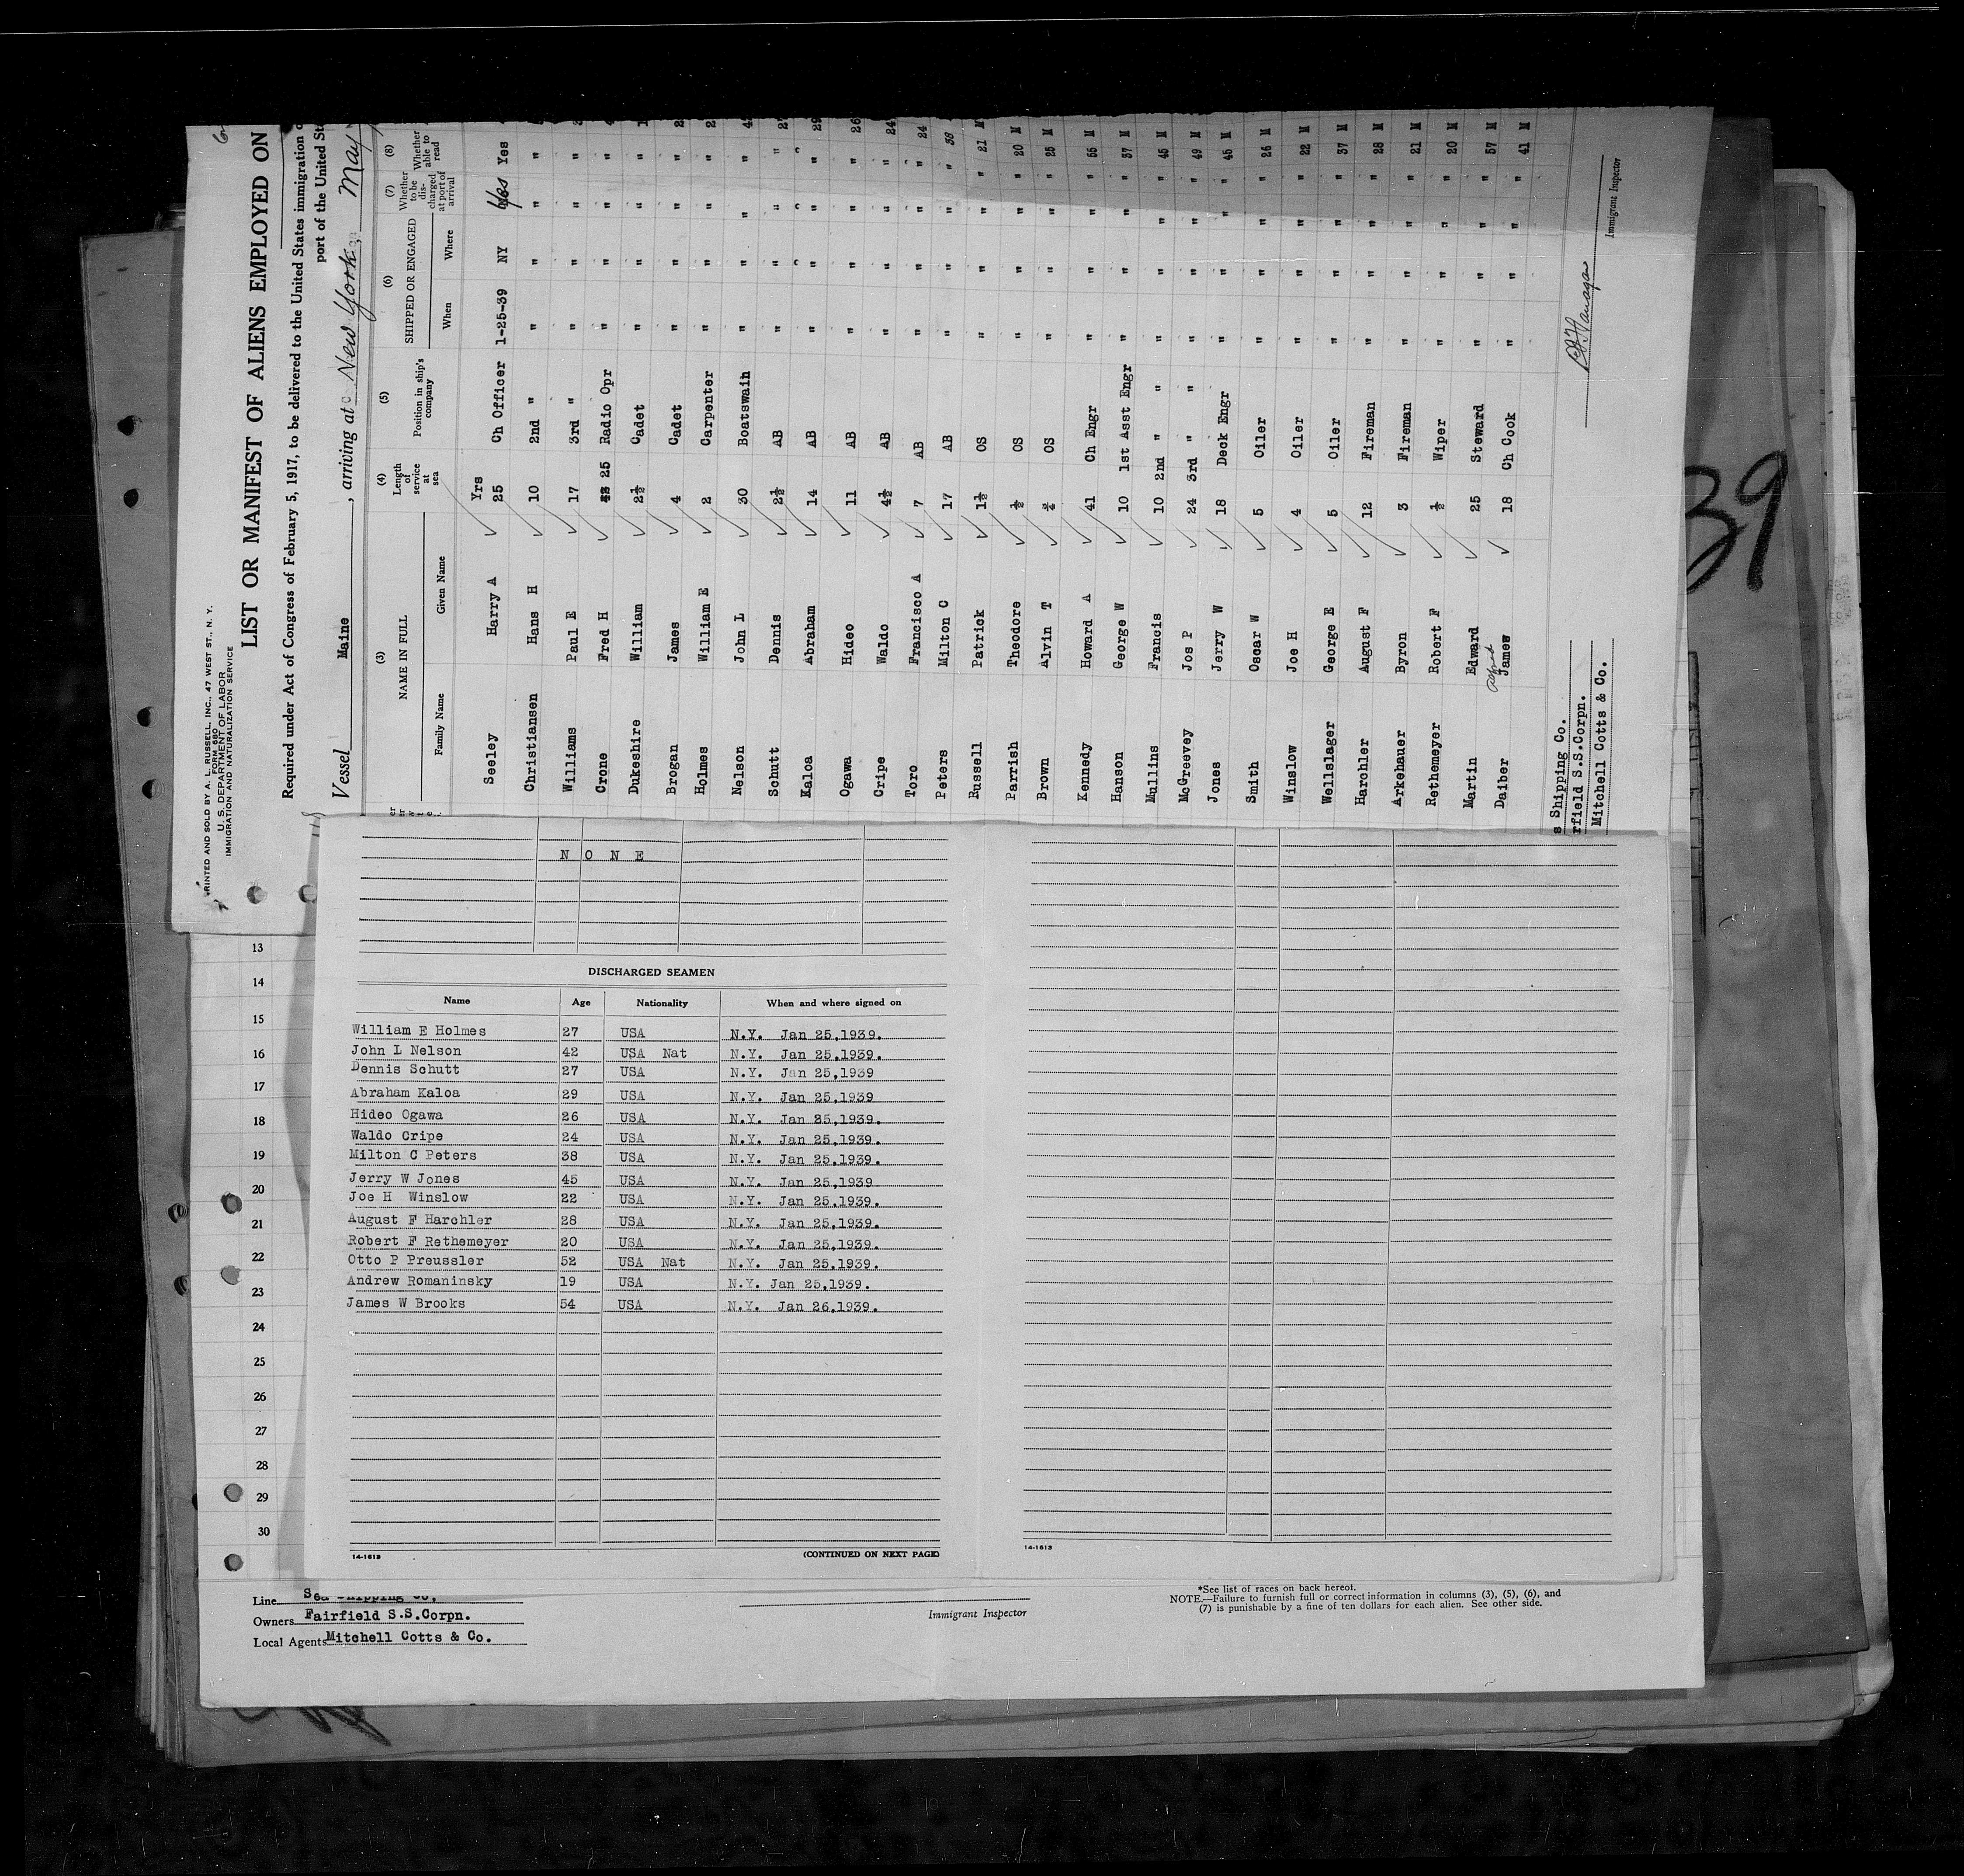 PRINTED AND SOLD BY A. L. RUSSELL, INC., 47 WEST ST., N. Y.
FORM 680
U. S. DEPARTMENT OF LABOR
IMMIGRATION AND NATURALIZATION SERVICE
LIST OR MANIFEST OF ALIENS EMPLOYED ON
Required under Act of Congress of February 5, 1917, to be delivered to the United States immigration
port of the United
Vessel Maine, arriving at New York May
(3) (4) (5) (6) (7) (8)
NAME IN FULL Length of service at sea Position in ship's company SHIPPED OR ENGAGED Whether to be discharged at port of arrival Whether able to read
Family Name Given Name When Where
Yrs
Seeley Harry A 25 Ch Officer 1-25-39 NY Yes Yes
Christiansen Hans H 10 2nd " " " " "
Williams Paul E 17 3rd " " " " "
Crone Fred H 25 Radio Opr " " " "
Dukeshire William 2½ Cadet " " " "
Brogan James 4 Cadet " " " "
Holmes William E 2 Carpenter " " " "
Nelson John L 30 Boatswain " " " "
Schutt Dennis 2½ AB " " " " 27
Kaloa Abraham 14 AB " " " " 29
Ogawa Hideo 11 AB " " " " 26
Cripe Waldo 4½ AB " " " " 24
Toro Francisco A 7 AB " " " " 24
Peters Milton C 17 AB " " " " 38
Russell Patrick 1½ OS " " " " 21 M
Parrish Theodore ½ OS " " " " 20 M
Brown Alvin T OS " " " " 25 M
Kennedy Howard A 41 Ch Engr " " " " 55 M
Hanson George W 10 1st Asst Engr " " " " 37 M
Mullins Francis 10 2nd " " " " " " 45 M
McGreevey Jos P 24 3rd " " " " " " 49 M
Jones Jerry W 18 Deck Engr " " " " 45 M
Smith Oscar W 5 Oiler " " " " 26 M
Winslow Joe H 4 Oiler " " " " 22 M
Wellslager George E 5 Oiler " " " " 37 M
Harchler August F 12 Fireman " " " " 28 M
Arkehauer Byron 3 Fireman " " " " 21 M
Rethemeyer Robert F ½ Wiper " " " " 20 M
Martin Edward 25 Steward " " " " 57 M
Daiber James 18 Ch Cook " " " " 41 M
s Shipping Co.
rfield S.S.Corpn.
Mitchell Cotts & Co.
Immigrant Inspector
39
N O N E
DISCHARGED SEAMEN
Name Age Nationality When and where signed on
William E Holmes 27 USA N.Y. Jan 25,1939.
John L Nelson 42 USA Nat N.Y. Jan 25,1939.
Dennis Schutt 27 USA N.Y. Jan 25,1939
Abraham Kaloa 29 USA N.Y. Jan 25,1939
Hideo Ogawa 26 USA N.Y. Jan 25,1939.
Waldo Cripe 24 USA N.Y. Jan 25,1939.
Milton C Peters 38 USA N.Y. Jan 25,1939.
Jerry W Jones 45 USA N.Y. Jan 25,1939
Joe H Winslow 22 USA N.Y. Jan 25,1939.
August F Harchler 28 USA N.Y. Jan 25,1939.
Robert F Rethemeyer 20 USA N.Y. Jan 25,1939.
Otto P Preussler 52 USA Nat N.Y. Jan 25,1939.
Andrew Romaninsky 19 USA N.Y. Jan 25,1939.
James W Brooks 54 USA N.Y. Jan 26,1939.
14-1613 (CONTINUED ON NEXT PAGE)
14-1613
13
14
15
16
17
18
19
20
21
22
23
24
25
26
27
28
29
30
Line Sea Shipping Co,
Owners Fairfield S.S.Corpn.
Local Agents Mitchell Cotts & Co.
Immigrant Inspector
*See list of races on back hereof.
NOTE.—Failure to furnish full or correct information in columns (3), (5), (6), and
(7) is punishable by a fine of ten dollars for each alien. See other side.